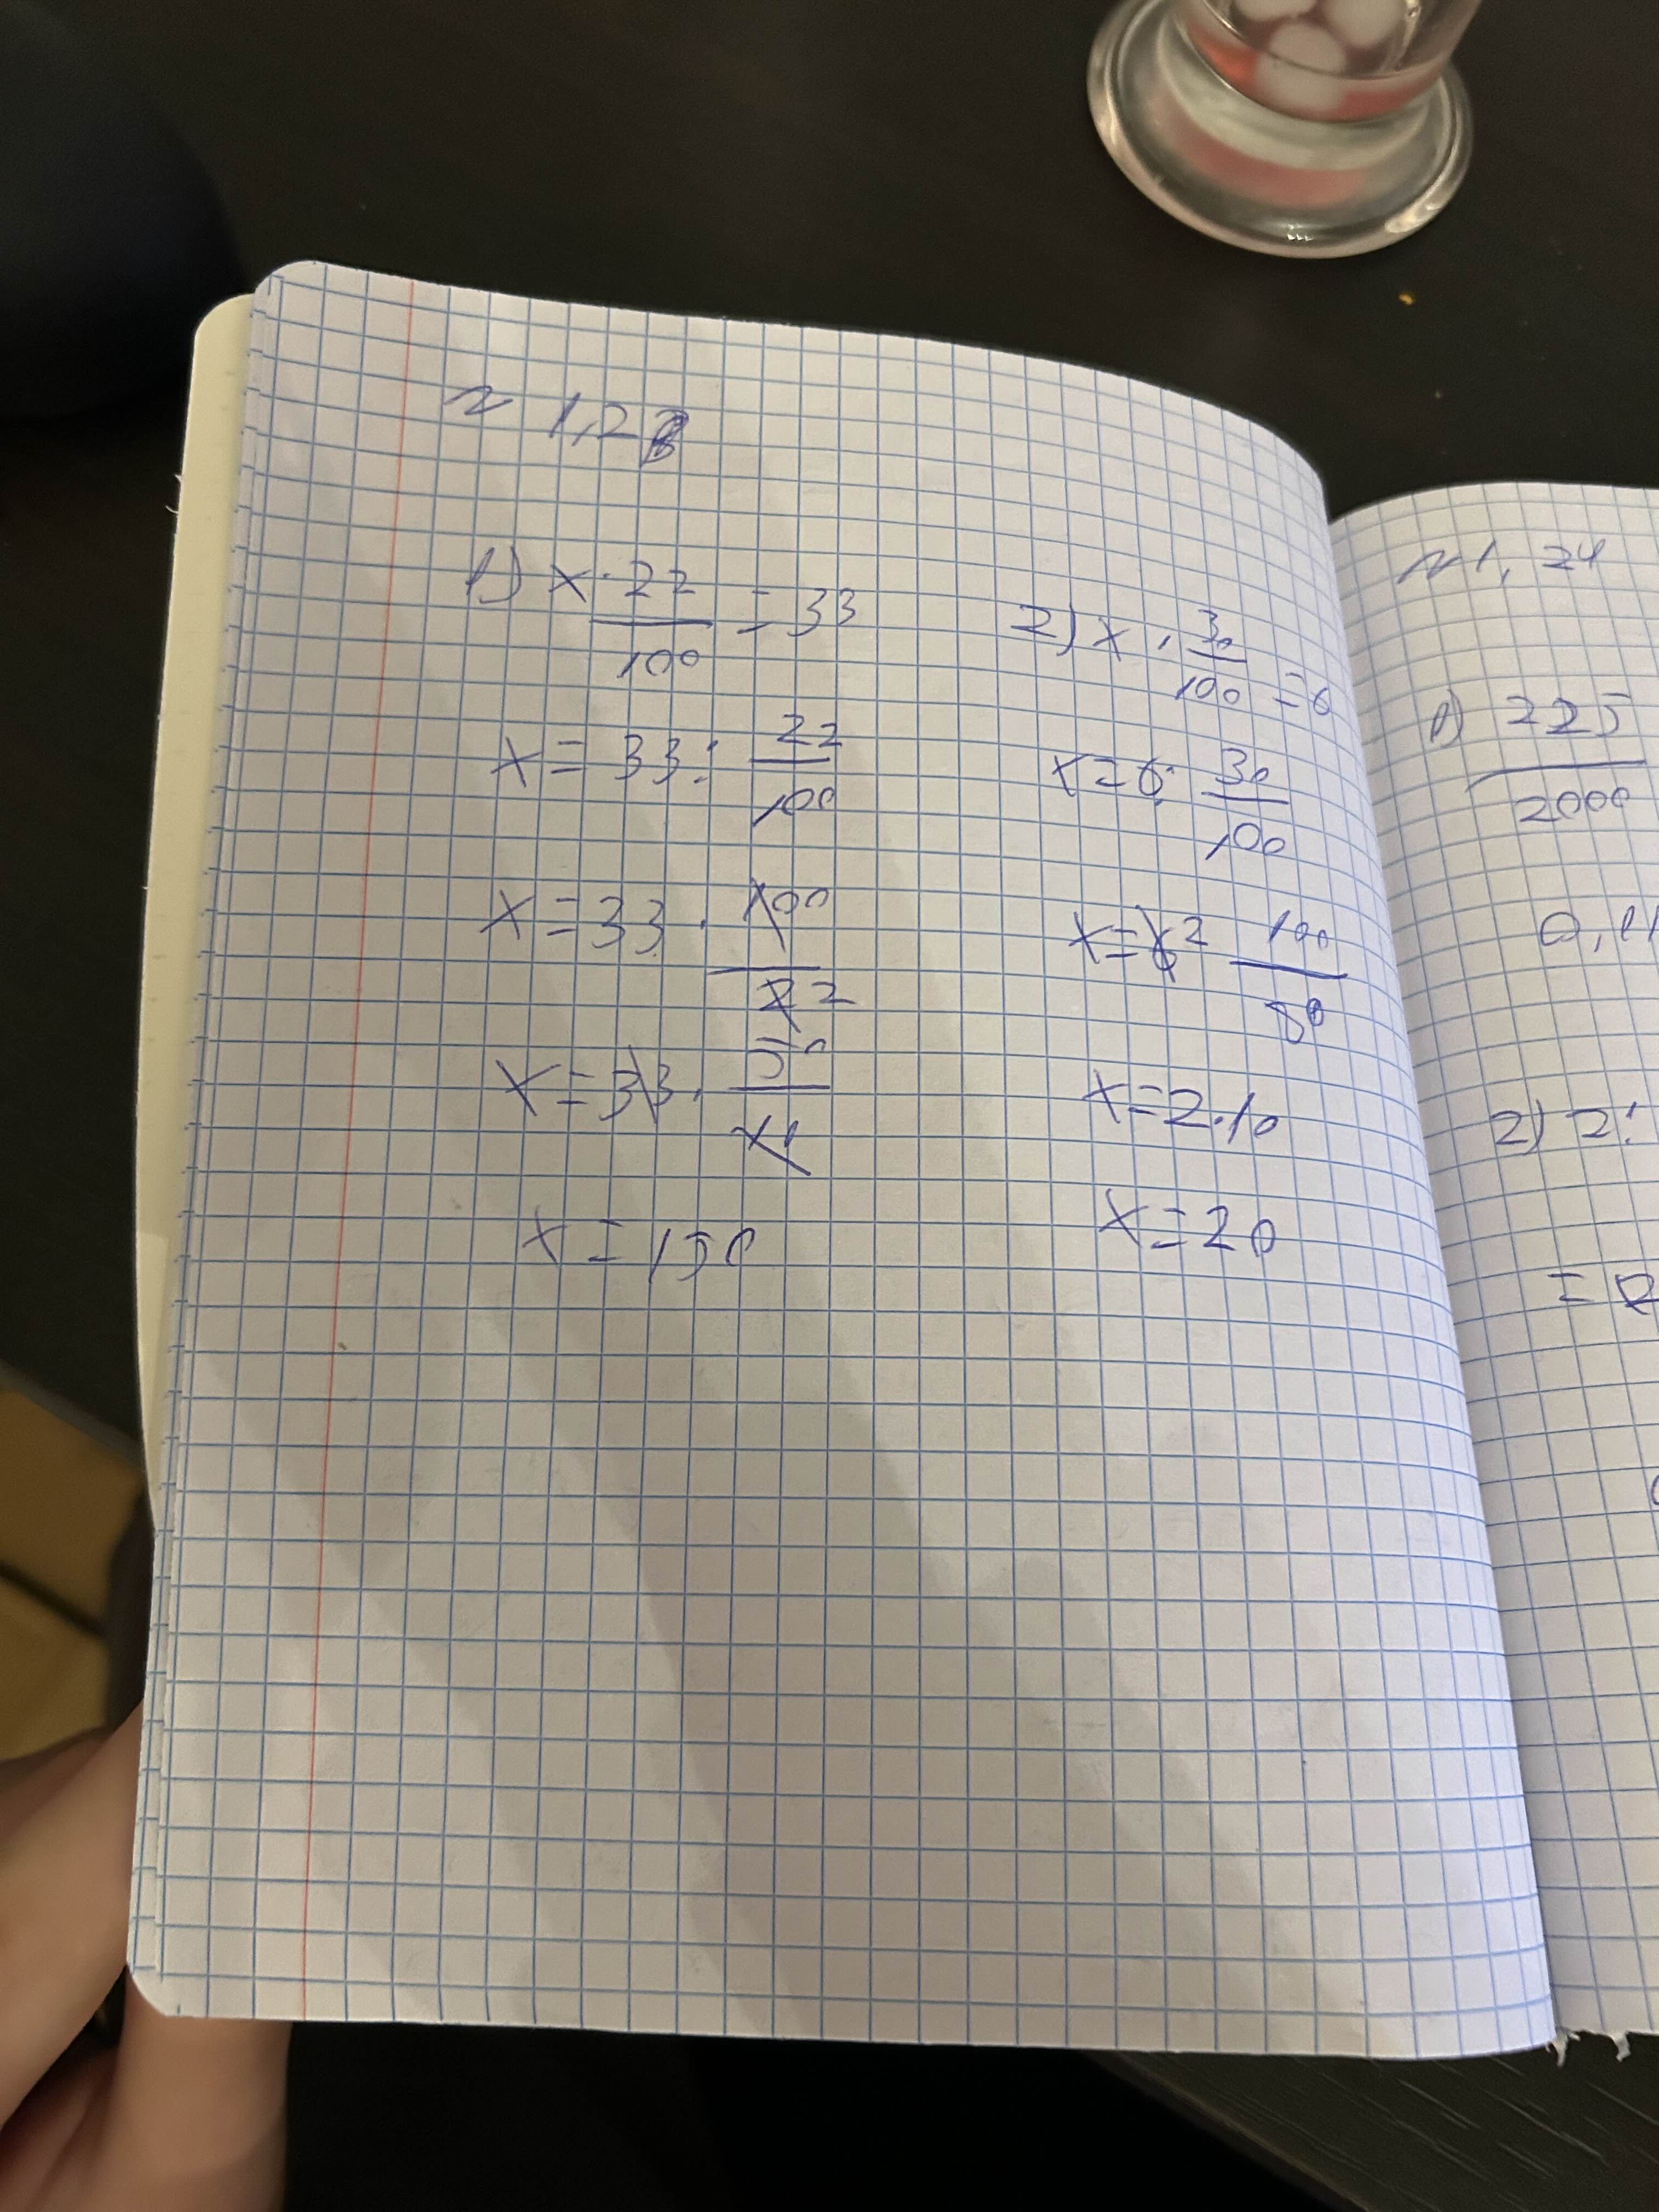 ~ 1,28
1) x · 22/100 = 33
x = 33 : 22/100
x = 33 · 100/22
x = 33 · 50/11
x = 150
2) x · 30/100 = 6
x = 6 : 30/100
x = 6 2 100/30
x = 2 · 10
x = 20
~ 1, 24
1) 225/2000
0,11
2) 2:
=